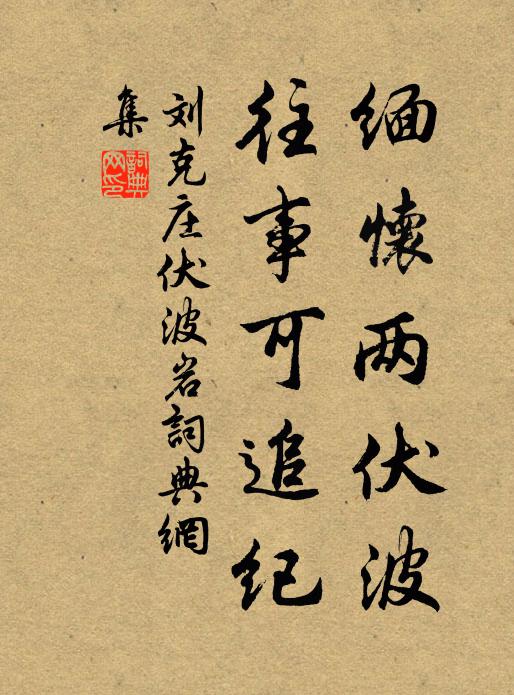 缅懷两伏波
往事可追纪
刘克庄伏波岩詞典網
集
詞典
网印